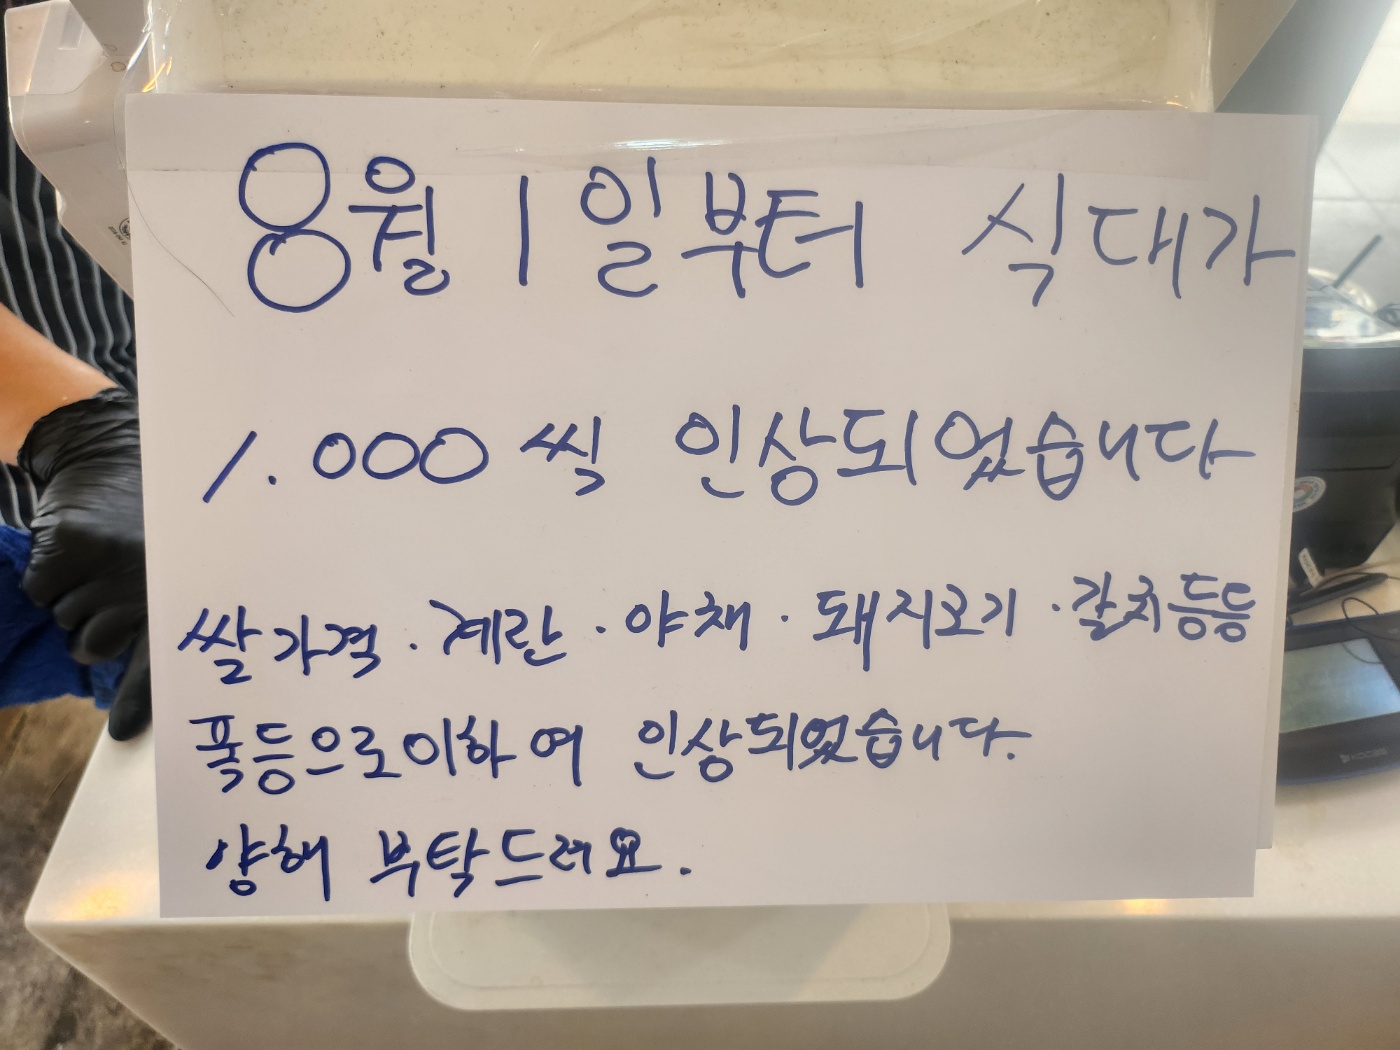 8월 1일부터 식대가
1.000씩 인상되었습니다
쌀가격·계란·야채·돼지고기·갈치등등
폭등으로이하여 인상되었습니다.
양해 부탁드려요.